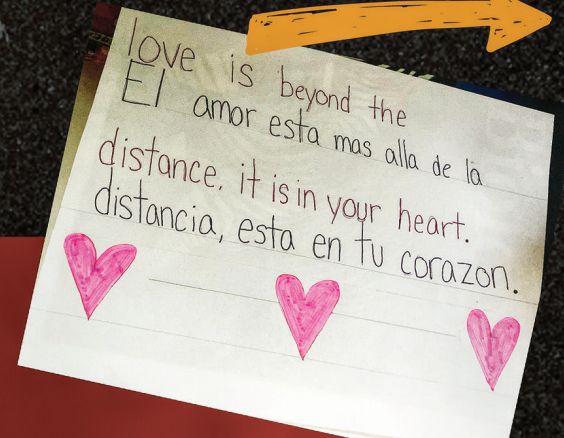 love is beyond the
El amor esta mas alla de la
distance. it is in your heart.
distancia, esta en tu corazon.